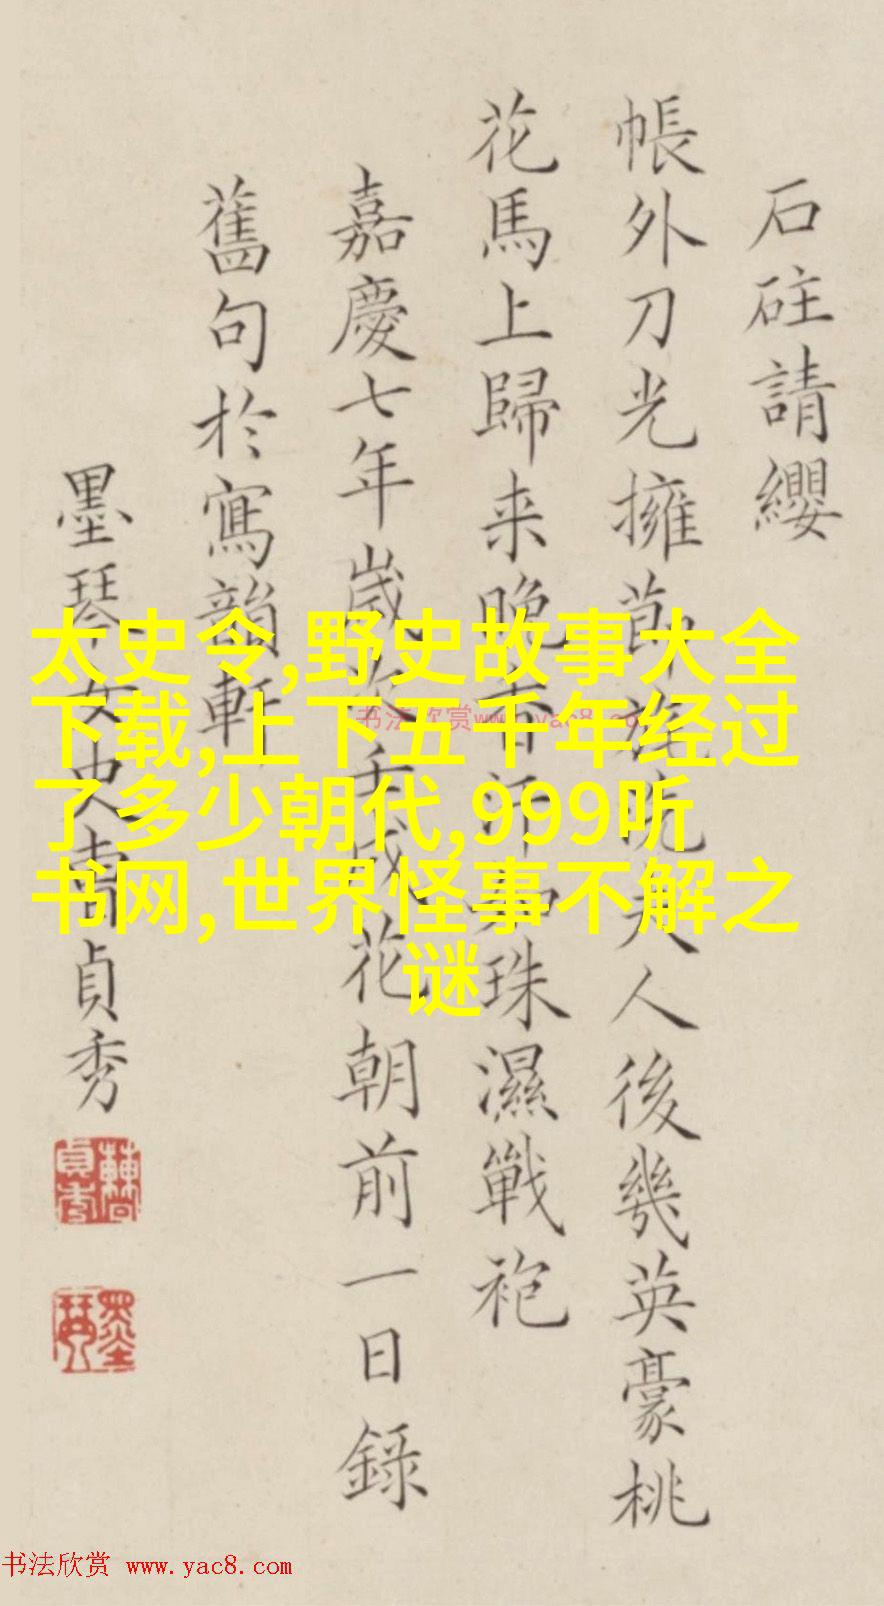 石砫請纓
帳外刀光擁節旄洗夫人後幾英豪桃
花馬上歸来晚香汗如珠濕戰袍
嘉慶七年歲次壬戌花朝前一日錄
舊句於寫韻軒
墨琴女史曹貞秀
太史令,野史故事大全
下载,上下五千年经过
了多少朝代,999听
书网,世界怪事不解之
谜
书法欣赏www.yac8.co
书法欣赏 www.yac8.com